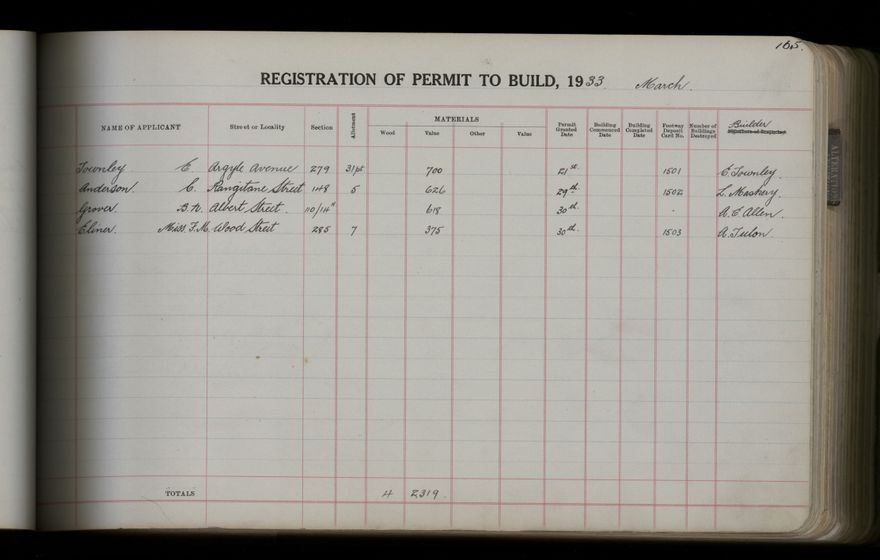 165.
REGISTRATION OF PERMIT TO BUILD, 1933 March.
NAME OF APPLICANT Street or Locality Section Allotment MATERIALS Wood Value Other Value Permit Granted Date Building Commenced Date Building Completed Date Footway Deposit Card No. Number of Buildings Destroyed Builder
Townley E. Argyle Avenue 279 31pt 700 21st 1501 E. Townley.
Anderson C. Rangitane Street 148 5 626 29th 1502 L. Maskery.
Grover. B.N. Albert Street. 110/14 618 30th A.E. Allen.
Elmer. Miss. F.M. Wood Street 285 7 375 30th 1503 A. Tulon.
TOTALS 4 2319.
ALTERATION